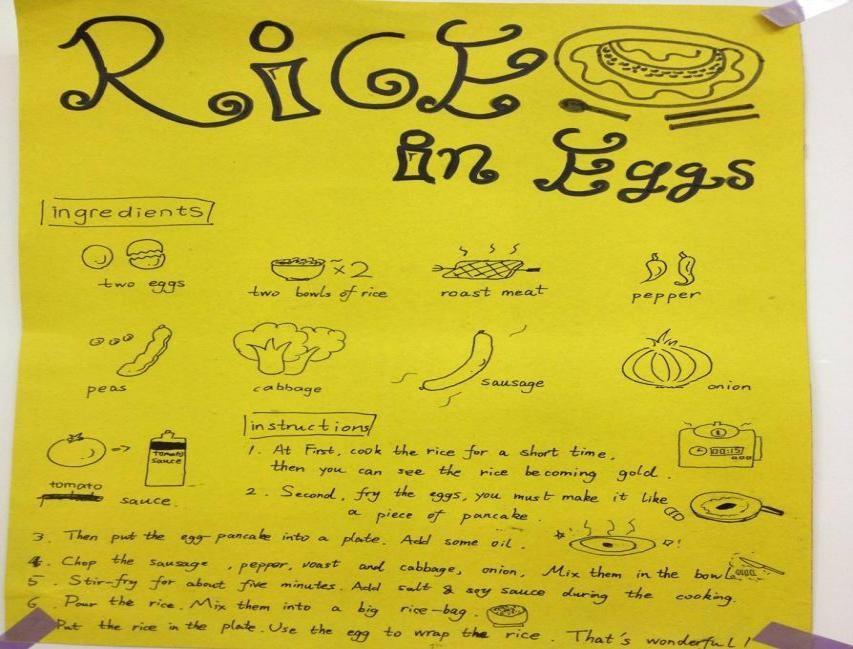 RiCE
in Eggs
ingredients
two eggs
×2
two bowls of rice
roast meat
pepper
peas
cabbage
sausage
onion
tomato
sauce
tomato
sauce.
instructions
1. At First, cook the rice for a short time,
then you can see the rice becoming gold.
00:15
2. Second, fry the eggs, you must make it like
a piece of pancake.
3. Then put the egg-pancake into a plate. Add some oil.
4. Chop the sausage, pepper, roast and cabbage, onion, Mix them in the bowl.
5. Stir-fry for about five minutes. Add salt & soy sauce during the cooking.
6. Pour the rice. Mix them into a big rice-bag.
Put the rice in the plate. Use the egg to wrap the rice. That's wonderful!